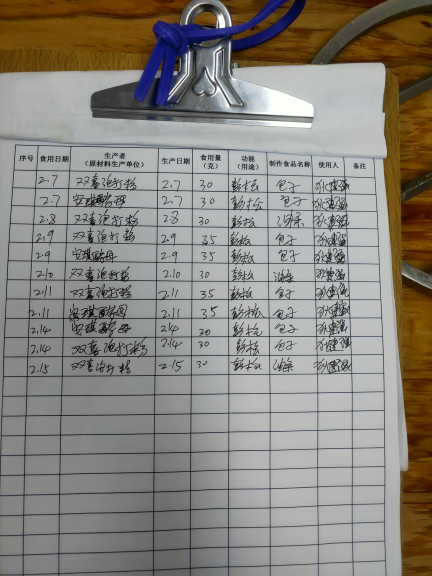 序号 食用日期 生产者（原材料生产单位） 生产日期 食用量（克） 功能（用途） 制作食品名称 使用人 备注
2.7 双喜泡打粉 2.7 30 彭松 包子
2.7 安琪酵母 2.7 30 彭松 包子
2.8 双喜泡打粉 2.8 30 彭松 油条
2.9 双喜泡打粉 2.9 35 彭松 包子
2.9 安琪酵母 2.9 35 彭松 包子
2.10 双喜泡打粉 2.10 30 彭松 油条
2.11 双喜泡打粉 2.11 35 彭松 包子
2.11 安琪酵母 2.11 35 彭松 包子
2.14 安琪酵母 2.14 30 彭松 包子
2.14 双喜泡打粉 2.14 30 彭松 包子
2.15 双喜泡打粉 2.15 30 彭松 油条